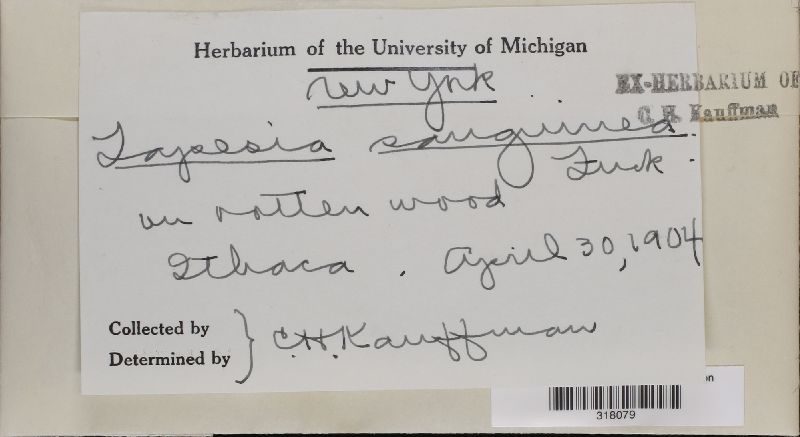 Herbarium of the University of Michigan
New York
EX-HERBARIUM OF
C. H. Kauffman
Tapesia sanguinea
Fuck.
on rotten wood
Ithaca. April 30, 1904
Collected by
Determined by
C.H. Kauffman
on
318079